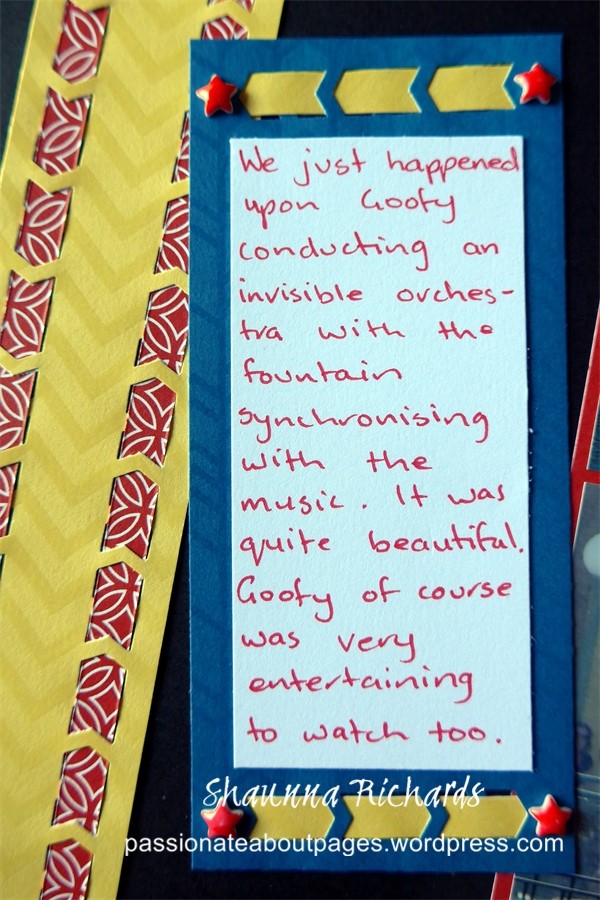 We just happened
upon Goofy
conducting an
invisible orches-
tra with the
fountain
synchronising
with the
music. It was
quite beautiful.
Goofy of course
was very
entertaining
to watch too.
Shaunna Richards
passionateaboutpages.wordpress.com